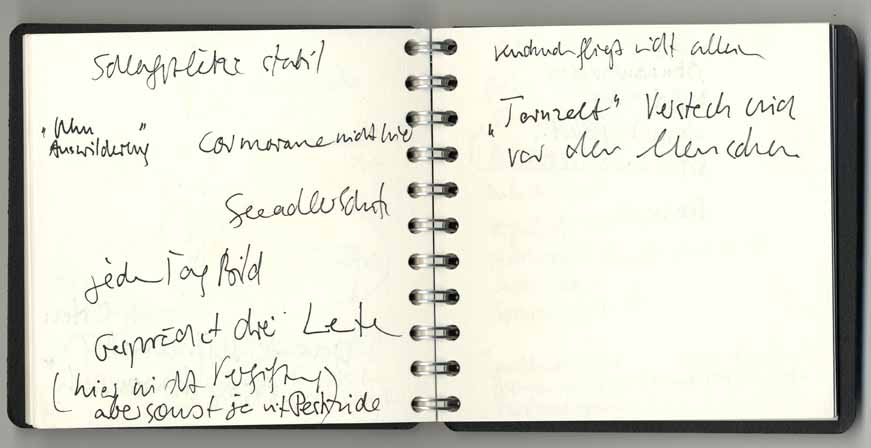 Schlafplätze stabil
"
Auswilderung"
Cormorane nicht hier
Seeadlerschutz
jeden Tag Bild
Gespräch mit drei Leute
(hier nicht Vergiftung)
aber sonst ja mit Pestizide
fliegt nicht allein
"Tarnzelt" Versteck mich
vor den Menschen